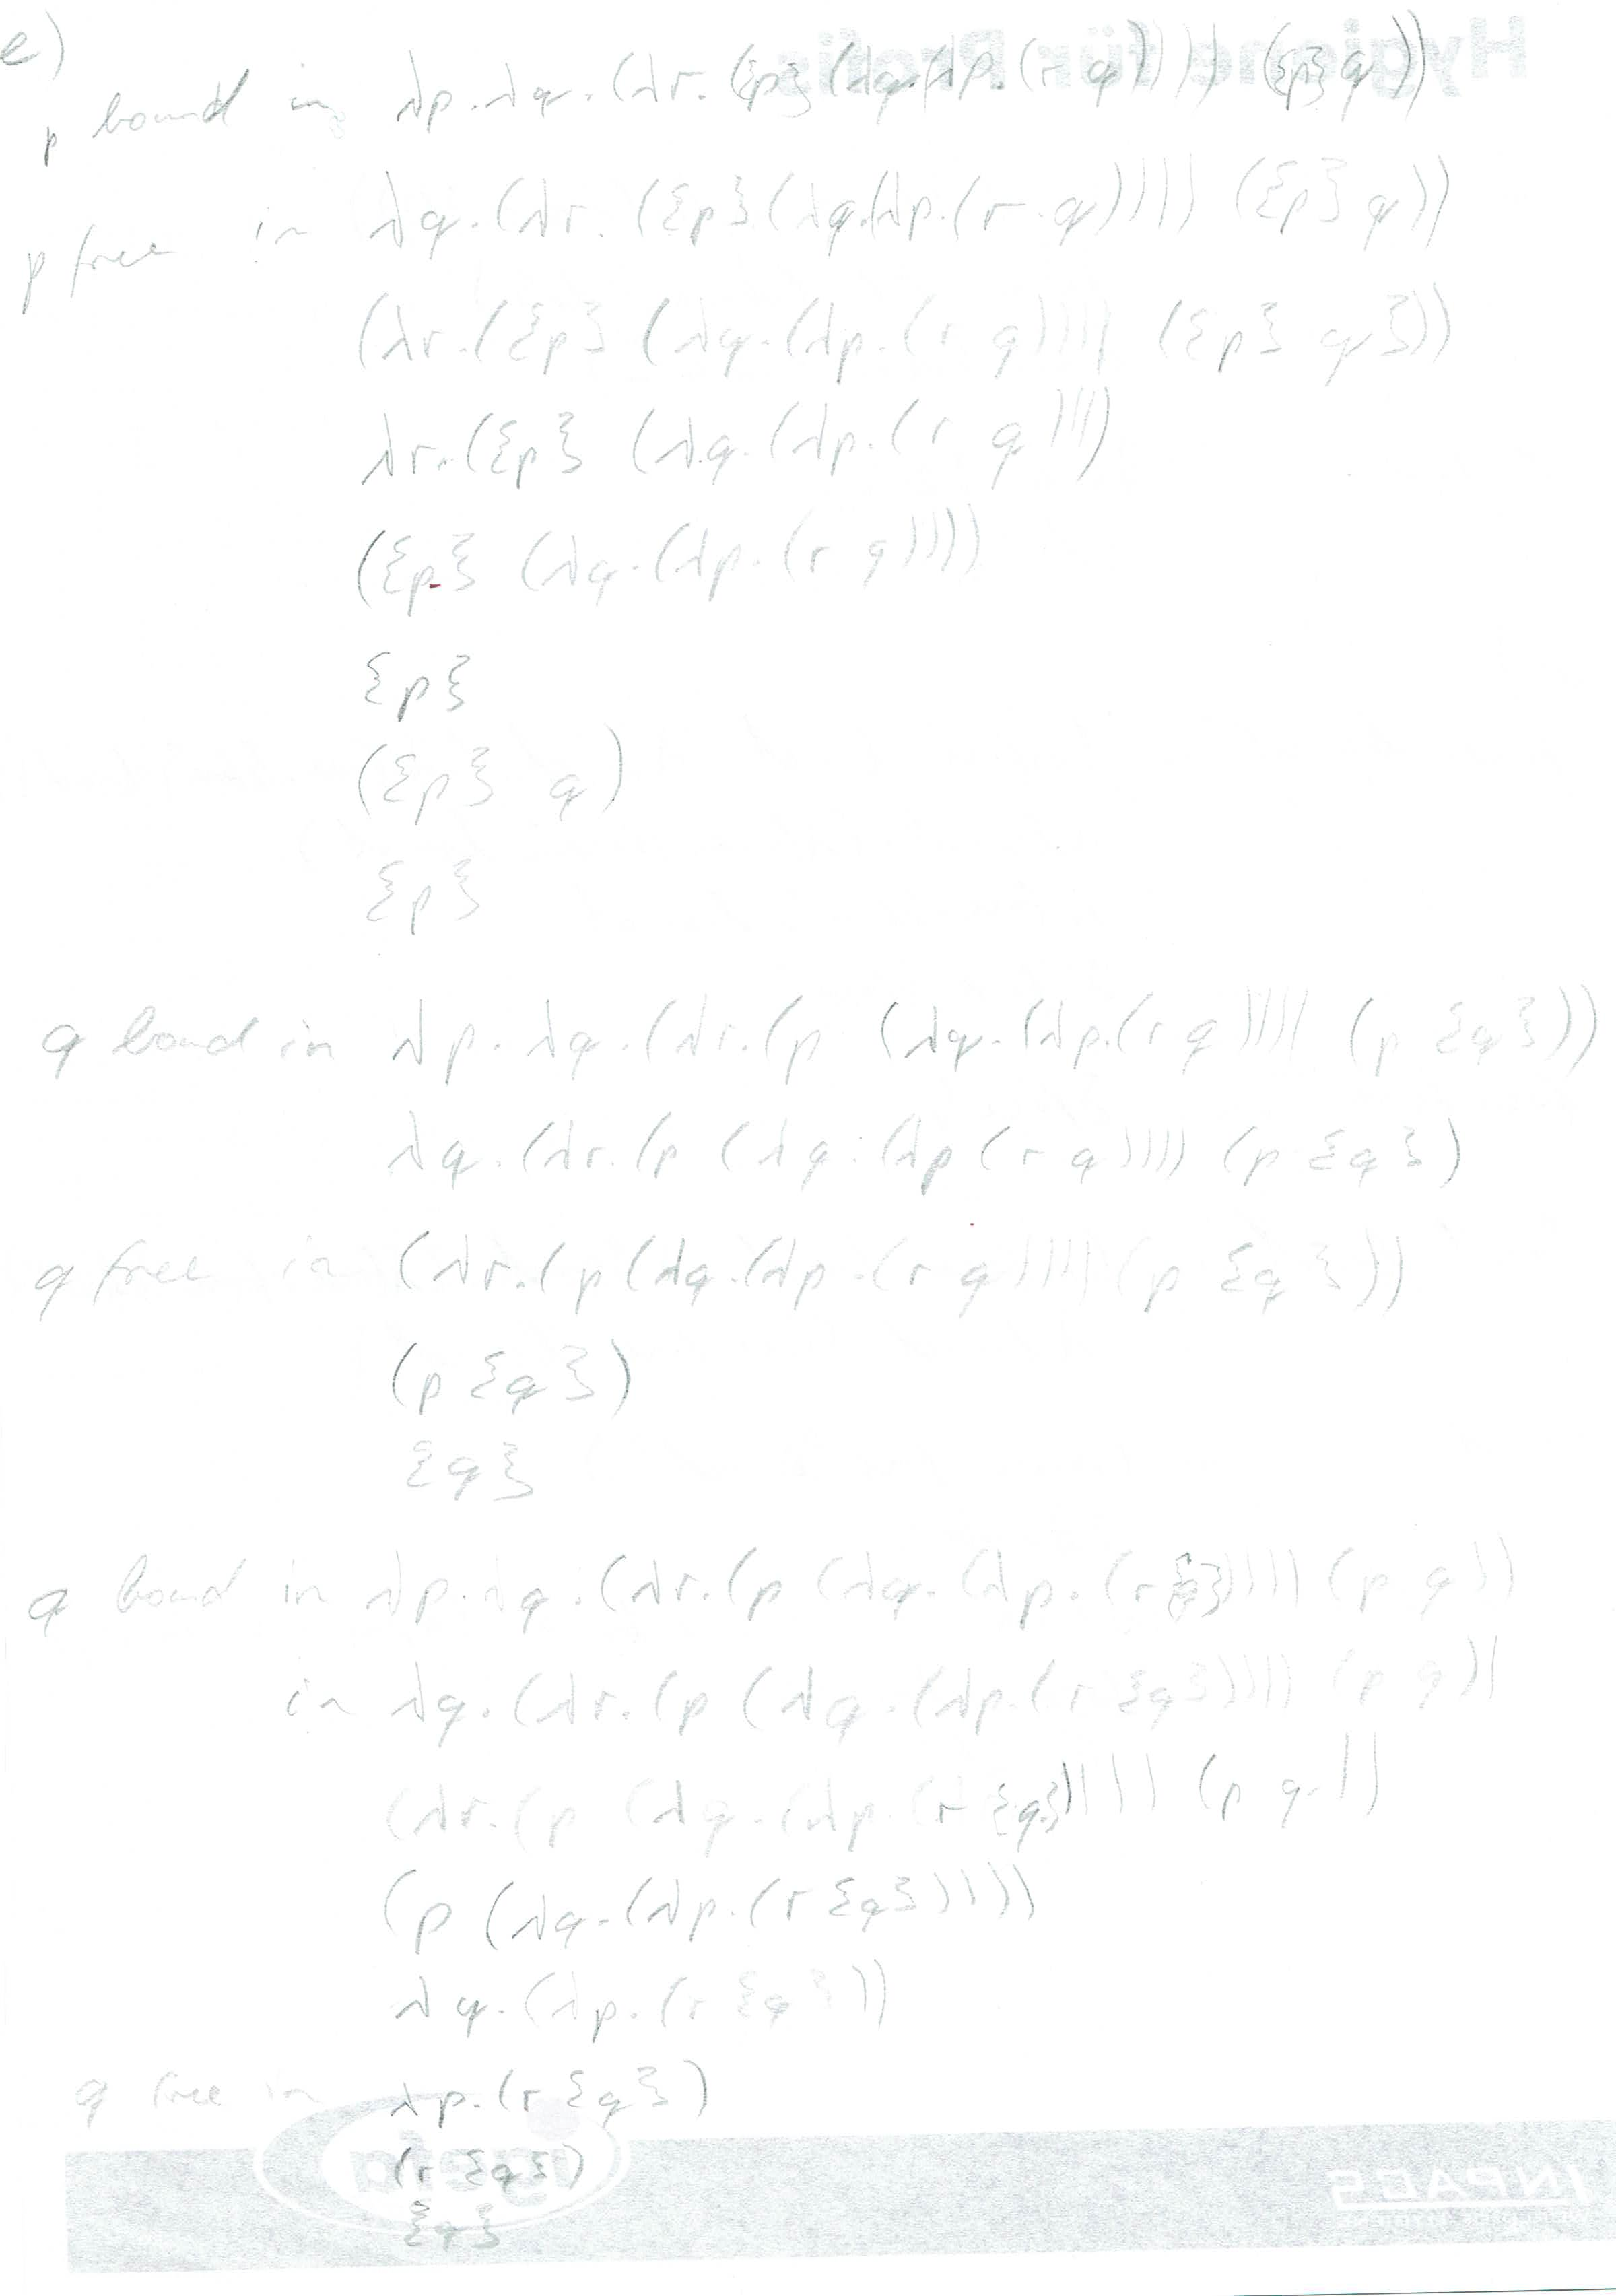 e)
Hygiene für Profis
p bound in λp.λq.(λr.({p}(λq.(λp.(r q)))) ({p} q))
p free in λq.(λr.({p}(λq.(λp.(r q)))) ({p} q))
(λr.({p} (λq.(λp.(r q)))) ({p} q}))
λr.({p} (λq.(λp.(r q)))
({p} (λq.(λp.(r q))))
{p}
({p} q)
{p}
q bound in λp.λq.(λr.(p (λq.(λp.(r q)))) (p {q}))
λq.(λr.(p (λq.(λp(r q)))) (p {q})
q free in (λr.(p(λq.(λp.(r q)))) (p {q}))
(p {q})
{q}
q bound in λp.λq.(λr.(p (λq.(λp.(r {q})))) (p q))
in λq.(λr.(p (λq.(λp.(r {q})))) (p q))
(λr.(p (λq.(λp.(r {q})))) (p q))
(p (λq.(λp.(r {q}))))
λq.(λp.(r {q}))
q free in λp.(r {q})
(r {q})
{q}
INPACS